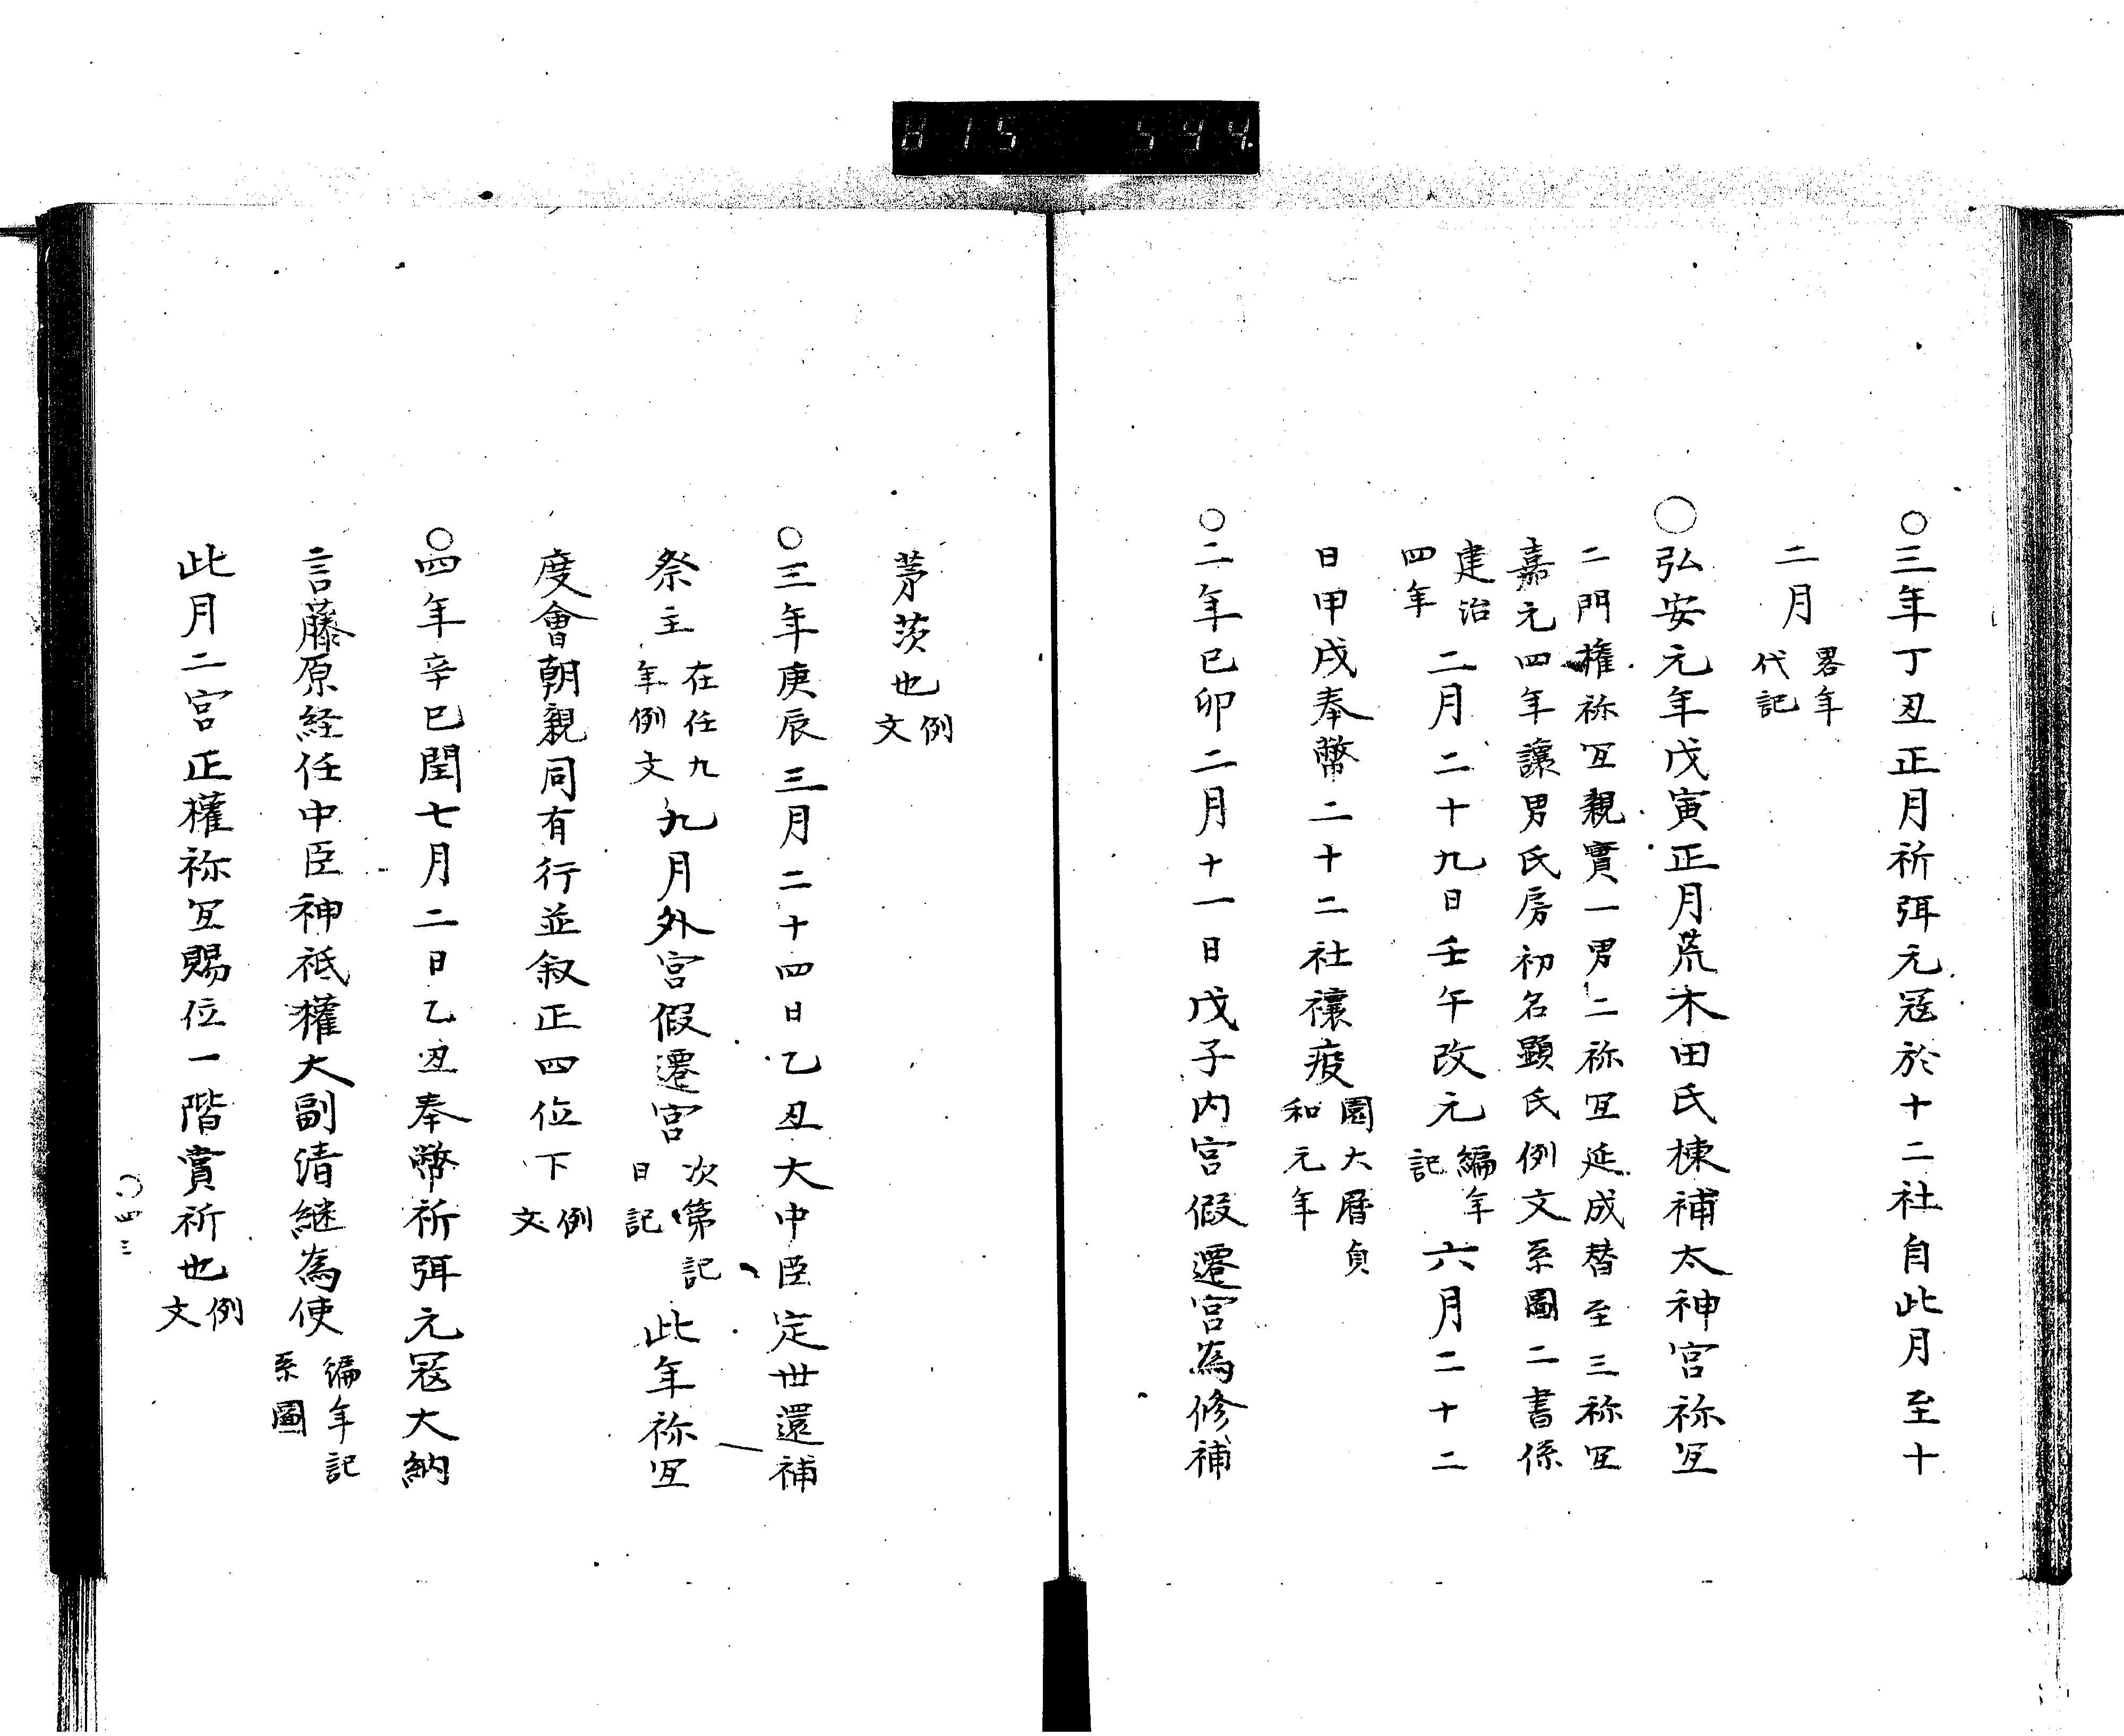 815 544.
○三年丁丑正月祈弭元冦於十二社自此月至十
二月畧年代記
○弘安元年戊寅正月荒木田氏棟補太神宮祢冝
二門權祢冝親實一男二祢冝延成替至三祢冝
嘉元四年讓男氏房初名顕氏例文系圖二書係
建治四年二月二十九日壬午改元編年記六月二十二
日甲戌奉幣二十二社禳疫園大曆貞和元年
○二年己卯二月十一日戊子内宮假遷宮為修補
茅茨也例文
○三年庚辰三月二十四日乙丑大中臣定世還補
祭主在任九年例文九月外宮假遷宮次第記日記此年祢冝
度會朝親同有行並叙正四位下例文
○四年辛巳閏七月二日乙丑奉幣祈弭元冦大納
言藤原経任中臣神祇權大副清継為使編年記系圖
此月二宮正權祢冝賜位一階賞祈也例文
○四三